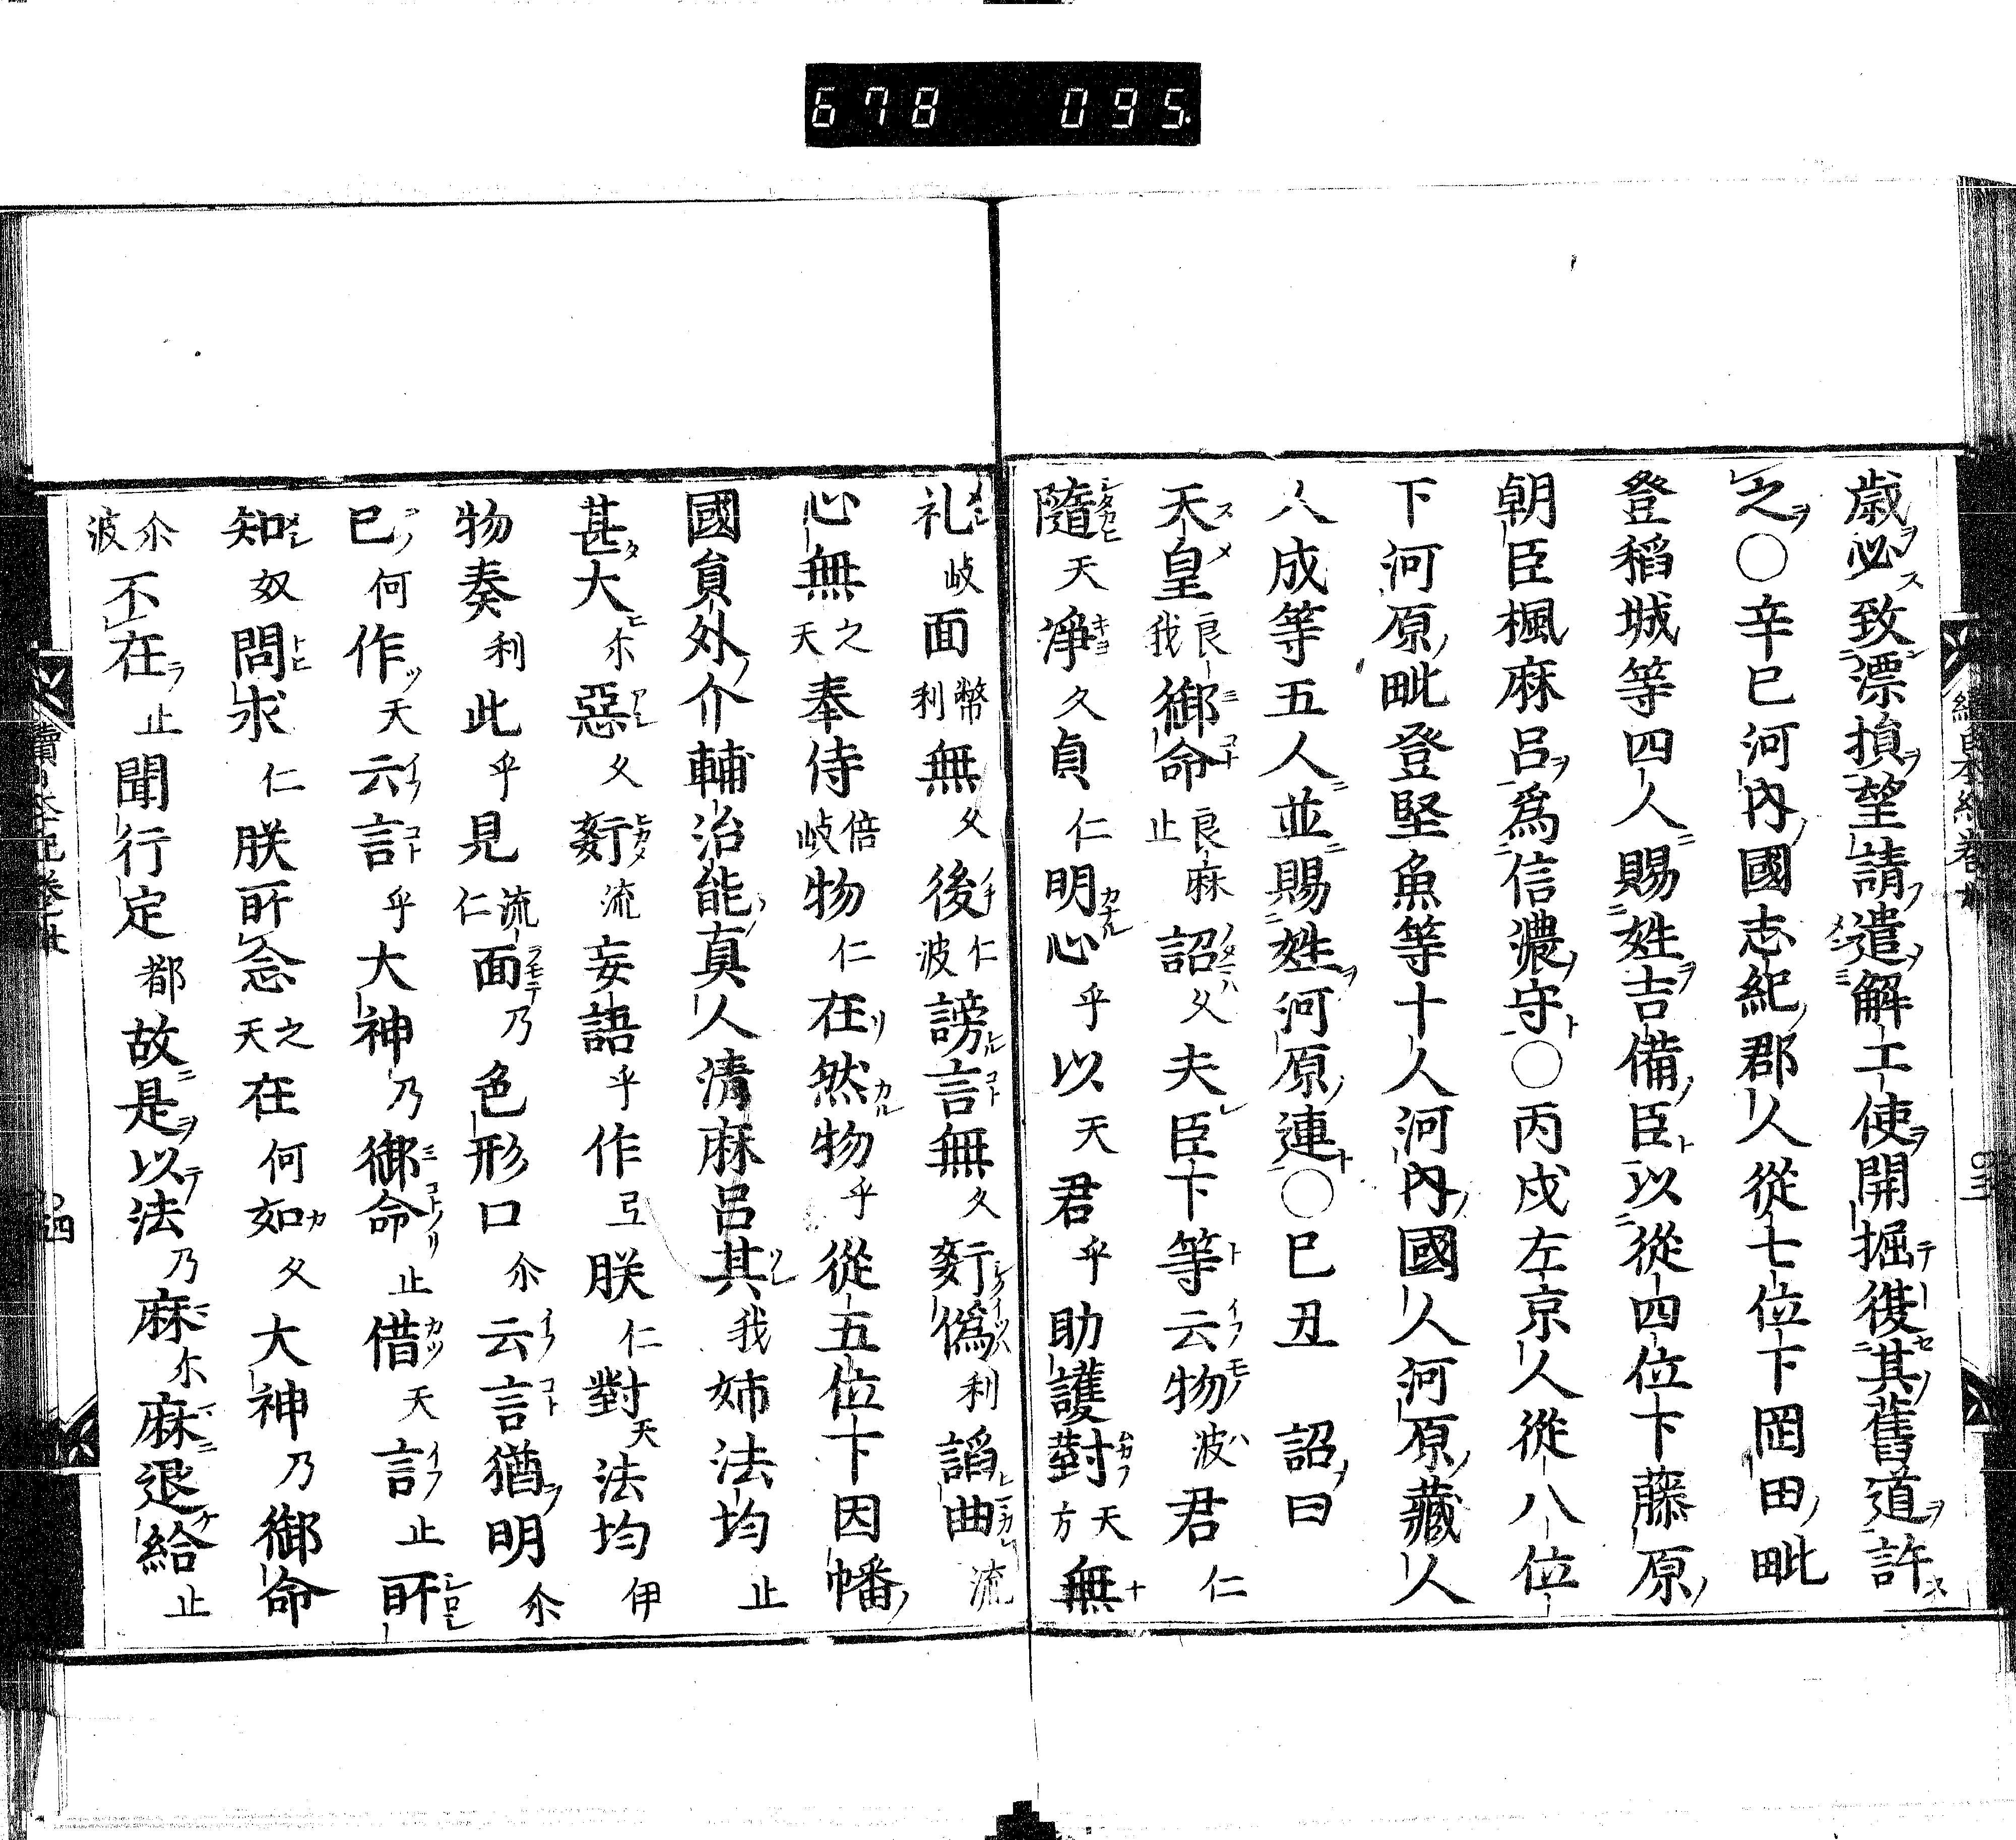 678 095.
歳必致漂損望請遣解工使開掘復其舊道許
之〇辛巳河內國志紀郡人從七位下岡田毗
登稻城等四人賜姓吉備臣以從四位下藤原
朝臣楓麻呂爲信濃守〇丙戌左京人從八位
下河原毗登堅魚等十人河內國人河原藏人
人成等五人並賜姓河原連〇巳丑 詔曰
天皇良我御命良麻止詔久夫臣下等云物波君仁
隨天淨久貞仁明心乎以天君乎助護對天方無
礼岐面幣利無久後仁波謗言無久姧僞利謟曲流
心無之天奉侍倍岐物仁在然物乎從五位下因幡
國員外介輔治能真人清麻呂其我姉法均止
甚大尓惡久姧流妄語乎作弖朕仁對天法均伊
物奏利此乎見流仁面乃色形口尓云言猶明尓
巳何作天云言乎大神乃御命止借天言止所
知奴問求仁朕所念之天在何如久大神乃御命
尓波不在止聞行定都故是以法乃麻尓麻退給止